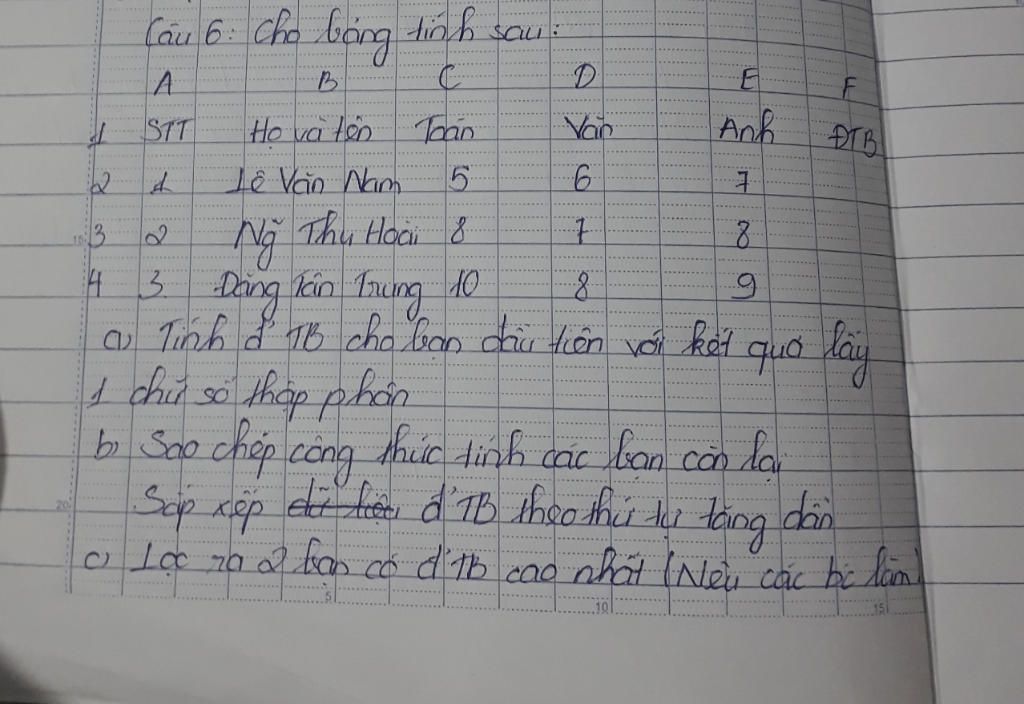 Câu 6: Cho bảng tính sau:
A B C D E F
1 STT Họ và tên Toán Văn Anh ĐTB
2 1 Lê Văn Nam 5 6 7
3 2 Ng~ Thu Hoài 8 7 8
4 3 Đặng Tấn Trung 10 8 9
a) Tính đ' TB cho bạn đầu tiên với kết quả lấy
1 chữ số thập phân
b) Sao chép công thức tính các bạn còn lại
Sắp xếp đ' TB theo thứ tự tăng dần
c) Lọc ra 2 bạn có đ' TB cao nhất (Nêu các bc làm)
15
20
5 10 15